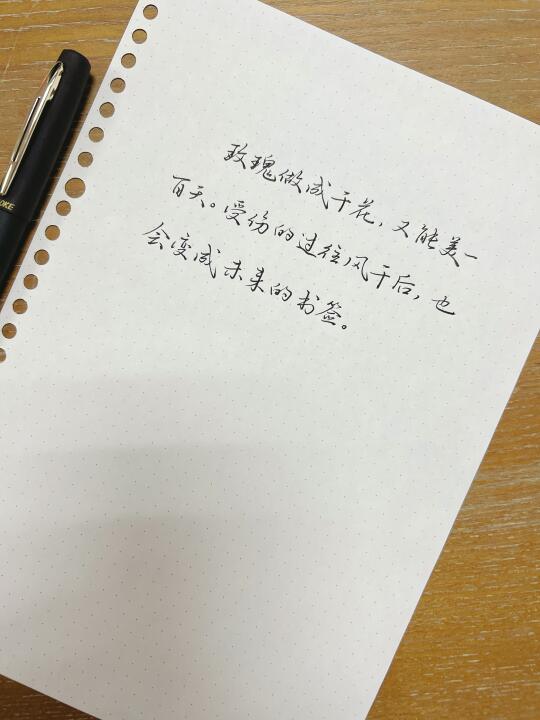 玫瑰做成干花，又能美一
百天。受伤的过往风干后，也
会变成未来的书签。
OKE